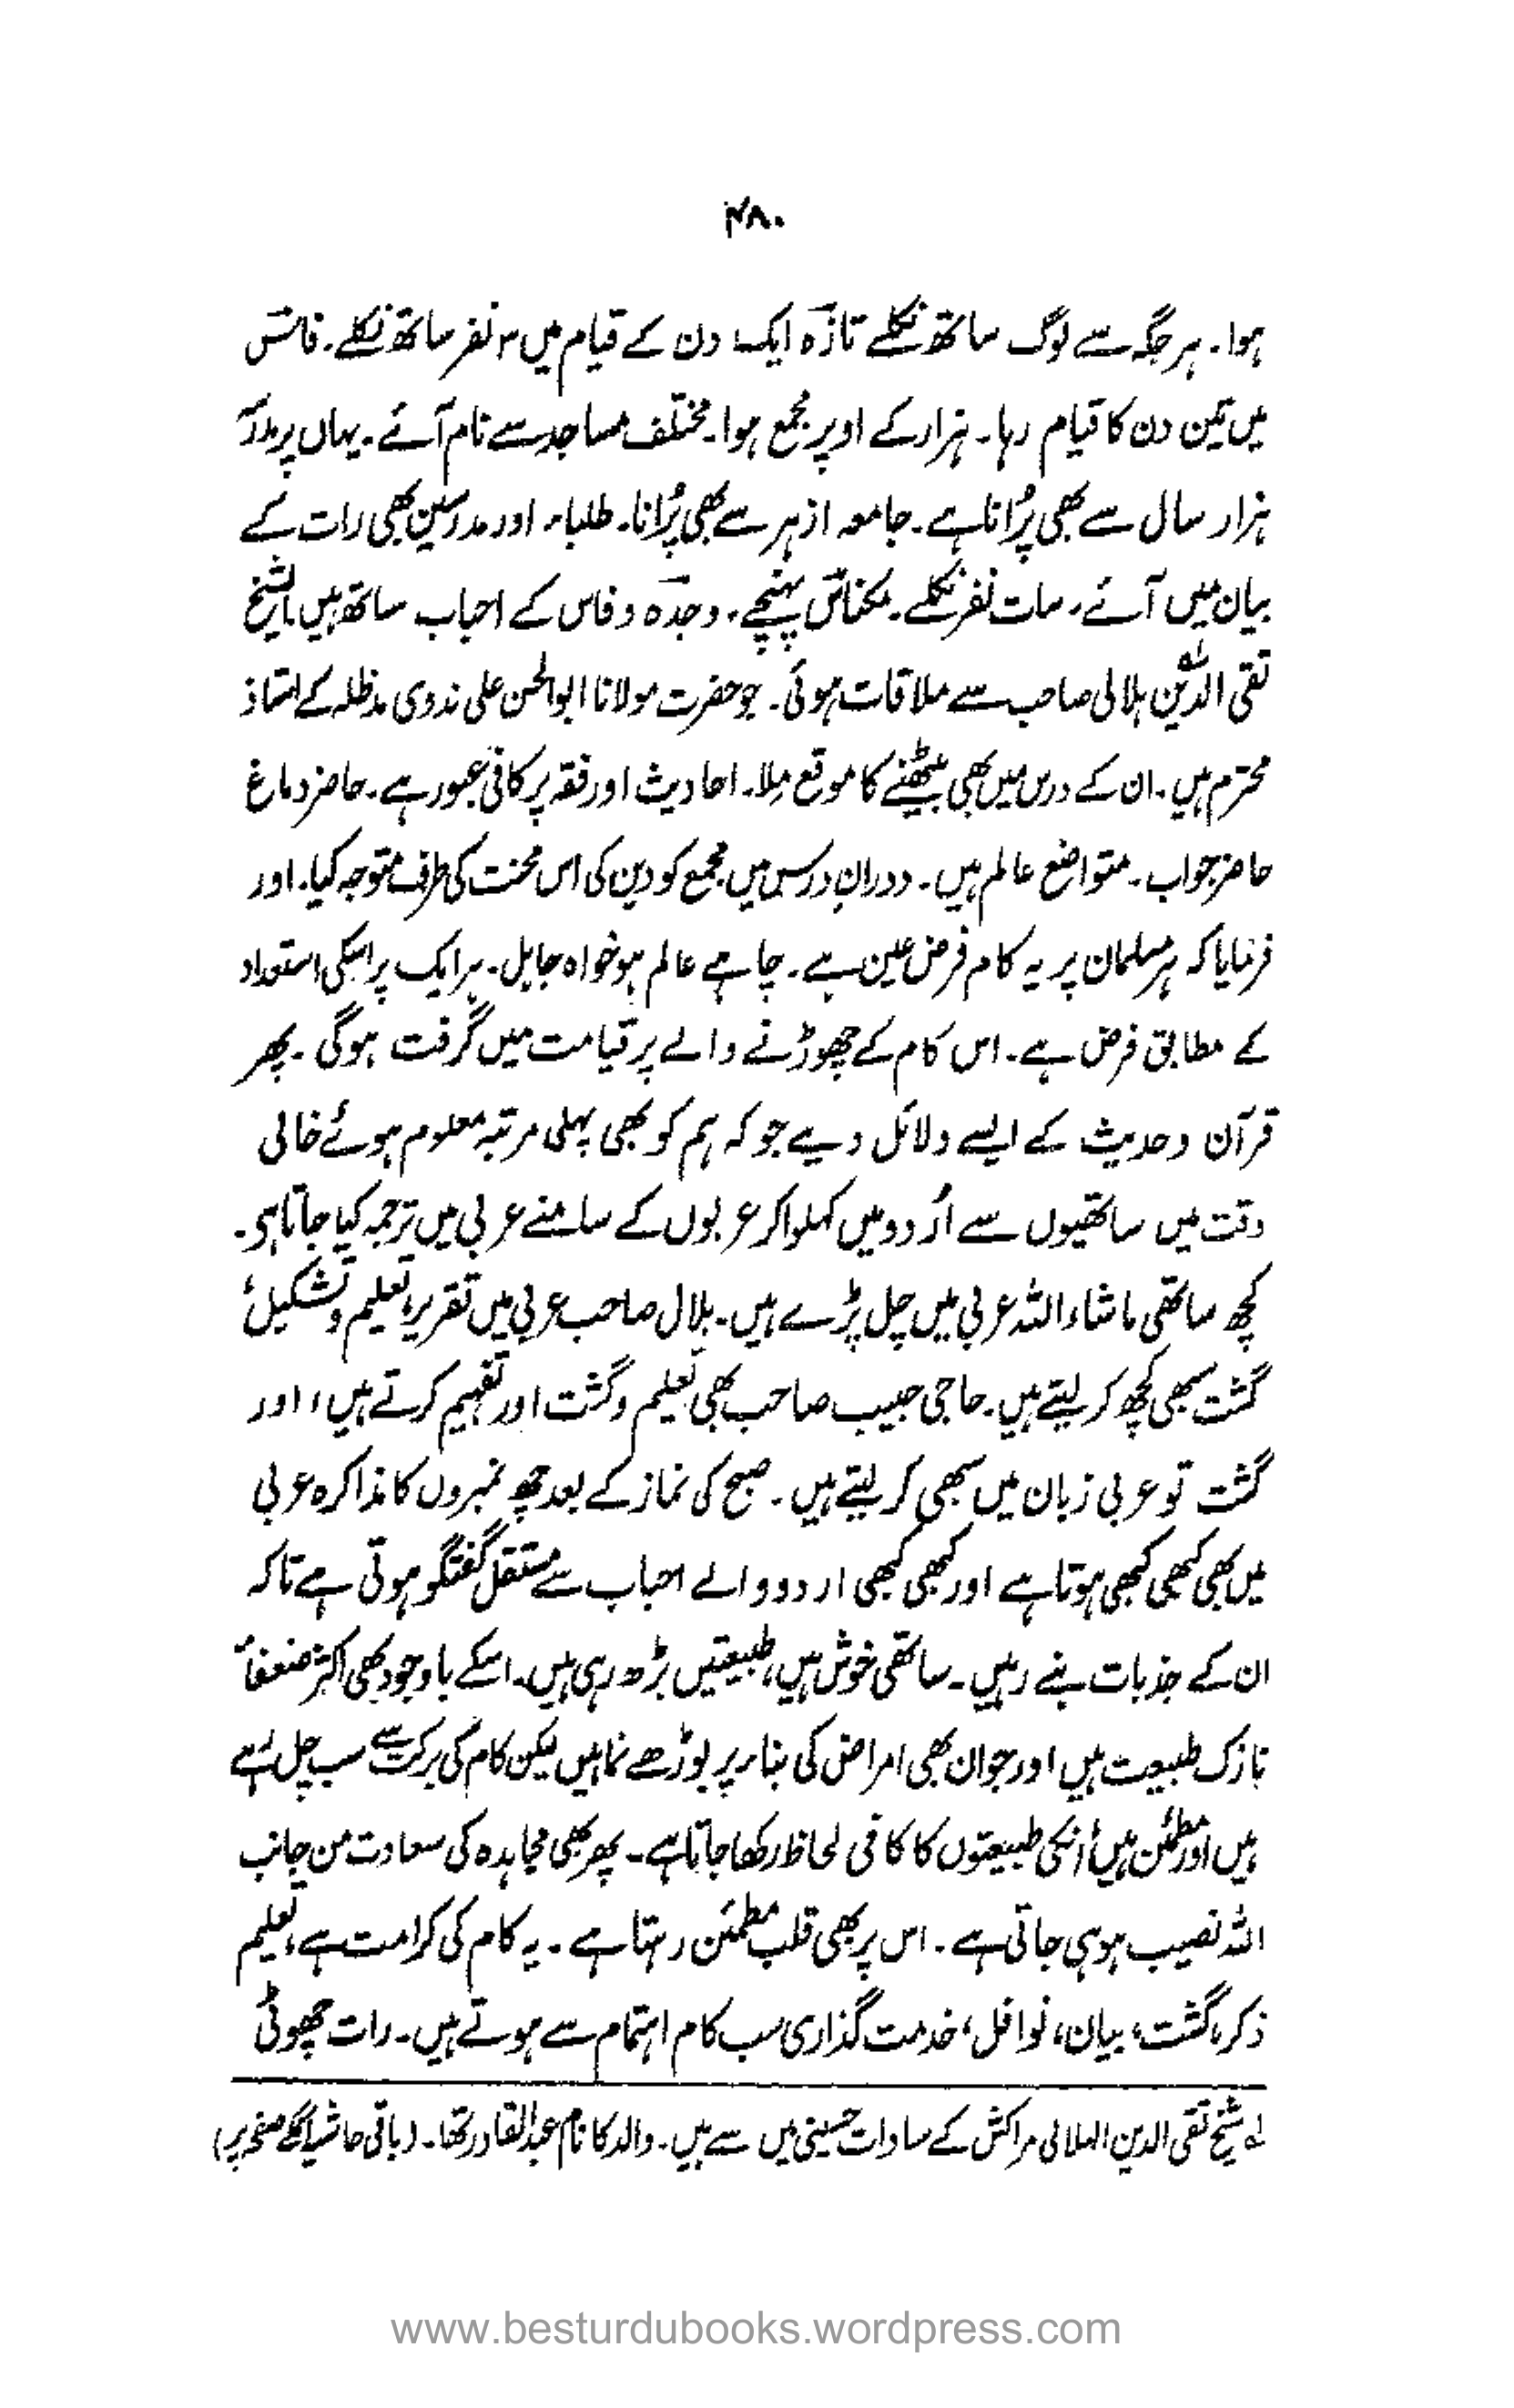 ۴۸۰
ہوا۔ ہر جگہ سے لوگ ساتھ نکلے تازہ ایک دن کے قیام میں ۳ نفر ساتھ نکلے۔ فاس
میں تین دن کا قیام رہا۔ ہزار کے اوپر مجمع ہوا۔ مختلف مساجد سے نام آئے۔ یہاں پر مدرسہ
ہزار سال سے بھی پُرانا ہے۔ جامعہ ازہر سے بھی پُرانا۔ طلباء اور مدرسین بھی رات کے
بیان میں آئے، سات نفر نکلے۔ مکناس پہنچے۔ وجدہ و فاس کے احباب ساتھ ہیں۔ الشیخ
تقی الدین ہلالی صاحب سے ملاقات ہوئی۔ جو حضرت مولانا ابوالحسن علی ندوی مدظلہ کے استاذ
محترم ہیں۔ ان کے درس میں بھی بیٹھنے کا موقع مِلا۔ احادیث اور فقہ پر کافی عبور ہے۔ حاضر دماغ
حاضر جواب۔ متواضع عالم ہیں۔ دورانِ درس میں مجمع کو دین کی اس محنت کی طرف متوجہ کیا۔ اور
فرمایا کہ ہر مسلمان پر یہ کام فرض عین ہے۔ چاہے عالم ہو خواہ جاہل۔ ہر ایک پر اسکی استعداد
کے مطابق فرض ہے۔ اس کام کے چھوڑنے والے پر قیامت میں گرفت ہوگی۔ پھر
قرآن وحدیث کے ایسے دلائل دیے جو کہ ہم کو بھی پہلی مرتبہ معلوم ہوئے خالی
وقت میں ساتھیوں سے اُردو میں کہلواکر عربوں کے سامنے عربی میں ترجمہ کیا جاتا ہی۔
کچھ ساتھی ماشاء اللہ عربی میں چل پڑے ہیں۔ بلال صاحب عربی میں تقریر، تعلیم و تشکیل،
گشت سبھی کچھ کر لیتے ہیں۔ حاجی حبیب صاحب بھی تعلیم و گشت اور تفہیم کرتے ہیں، اور
گشت تو عربی زبان میں بھی کر لیتے ہیں۔ صبح کی نماز کے بعد چھ نمبروں کا مذاکرہ عربی
میں بھی کبھی کبھی ہوتا ہے اور کبھی کبھی اردو والے احباب سے مستقل گفتگو ہوتی ہے تاکہ
ان کے جذبات بنے رہیں۔ ساتھی خوش ہیں، طبیعتیں بڑھ رہی ہیں۔ اسکے باوجود بھی اکثر ضعفاء
نازک طبیعت ہیں اور جوان بھی امراض کی بناء پر بوڑھے نما ہیں لیکن کام کی برکت سے سب چل رہے
ہیں اور مطمئن ہیں، اُنکی طبیعتوں کا کافی لحاظ رکھا جاتا ہے۔ پھر بھی مجاہدہ کی سعادت من جانب
اللہ نصیب ہو ہی جاتی ہے۔ اس پر بھی قلب مطمئن رہتا ہے۔ یہ کام کی کرامت ہے، تعلیم
ذکر، گشت، بیان، نوافل، خدمت گذاری سب کام اہتمام سے ہوتے ہیں۔ رات چھوٹی
لے شیخ تقی الدین الہلالی مراکش کے سادات حسینی میں سے ہیں۔ والد کا نام عبدالقادر تھا۔ (باقی حاشیہ اگلے صفحہ پر)
www.besturdubooks.wordpress.com